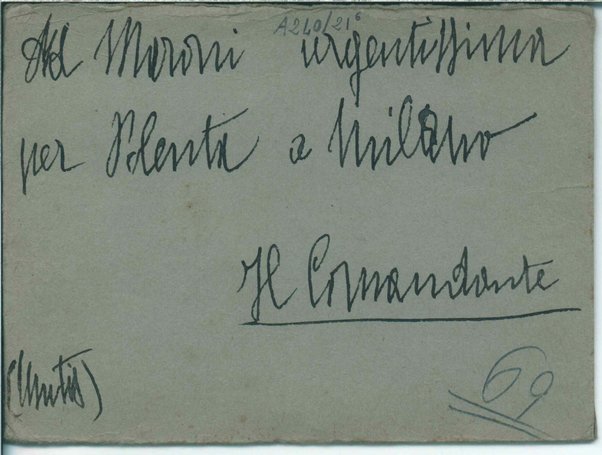 A240/21⁶
Ad Maroni urgentissima
per Polenta a Milano
Il Comandante
69